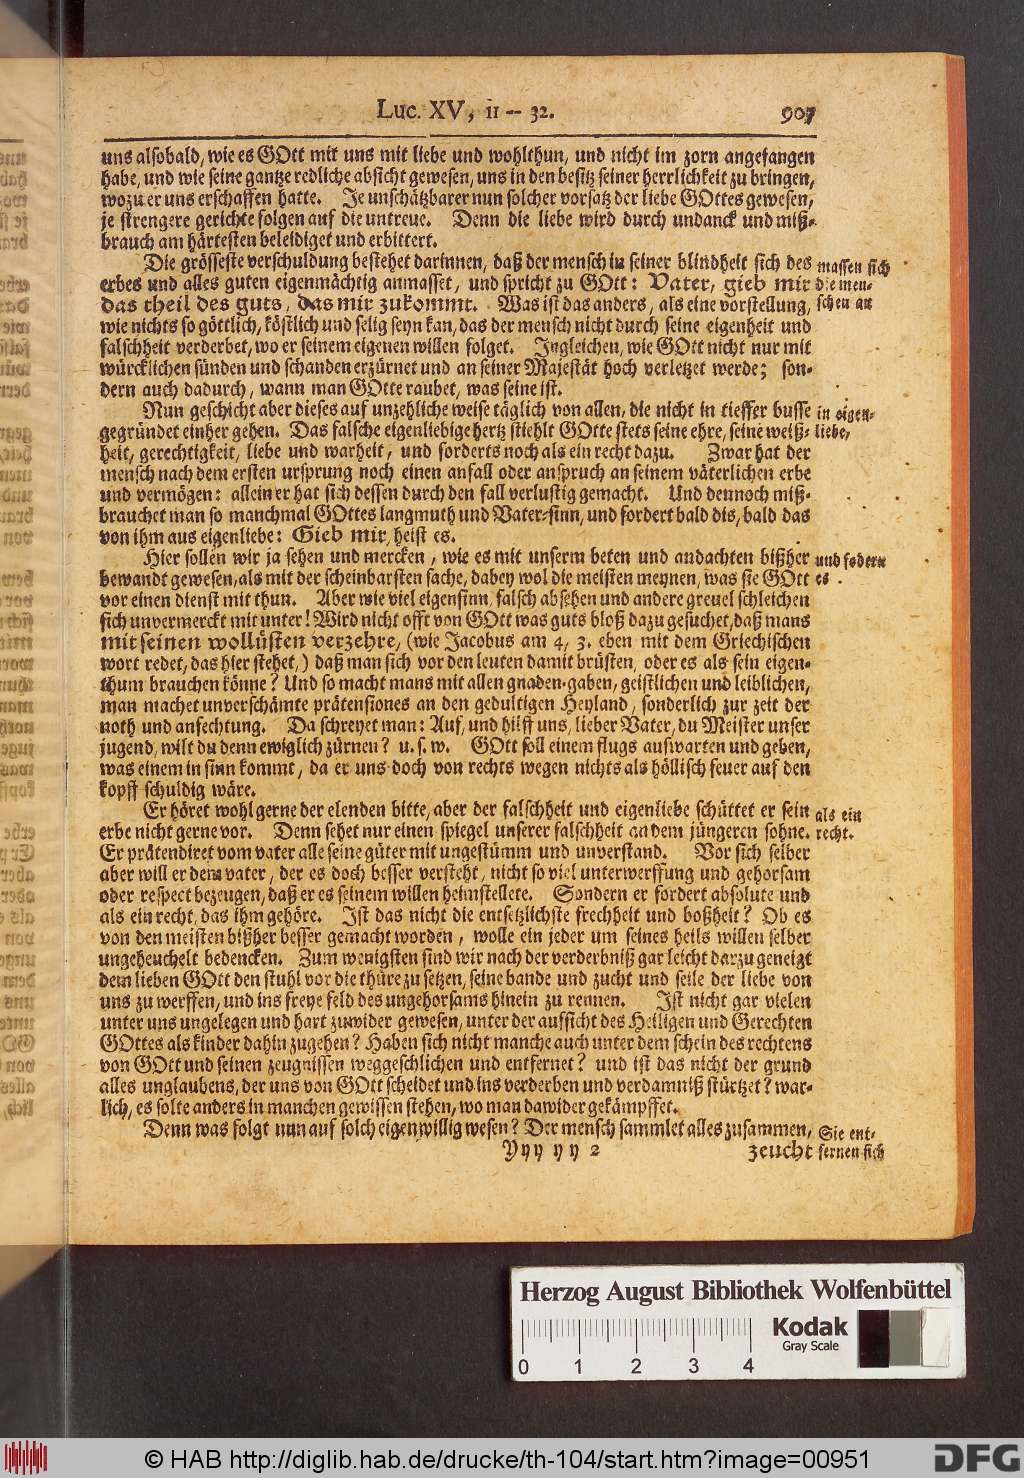 Luc. XV, 11 -- 32. 907
uns alsobald, wie es GOtt mit uns mit liebe und wohlthun, und nicht im zorn angefangen
habe, und wie seine gantze redliche absicht gewesen, uns in den besitz seiner herrlichkeit zu bringen,
wozu er uns erschaffen hatte. Je unschätzbarer nun solcher vorsatz der liebe GOttes gewesen,
je strengere gerichte folgen auf die untreue. Denn die liebe wird durch undanck und miß-
brauch am härtesten beleidiget und erbittert.
Die grösseste verschuldung bestehet darinnen, daß der mensch in seiner blindheit sich des massen sich
erbes und alles guten eigenmächtig anmasset, und spricht zu GOtt: Vater, gieb mir die men-
das theil des guts, das mir zukommt. Was ist das anders, als eine vorstellung, schen an
wie nichts so göttlich, köstlich und selig seyn kan, das der mensch nicht durch seine eigenheit und
falschheit verderbet, wo er seinem eigenen willen folget. Ingleichen, wie GOtt nicht nur mit
würcklichen sünden und schanden erzürnet und an seiner Majestät hoch verletzet werde; son-
dern auch dadurch, wann man GOtte raubet, was seine ist.
Nun geschicht aber dieses auf unzehliche weise täglich von allen, die nicht in tieffer busse in eigen-
gegründet einher gehen. Das falsche eigenliebige hertz stiehlt GOtte stets seine ehre, seine weiß- liebe,
heit, gerechtigkeit, liebe und warheit, und forderts noch als ein recht dazu. Zwar hat der
mensch nach dem ersten ursprung noch einen anfall oder anspruch an seinem väterlichen erbe
und vermögen: allein er hat sich dessen durch den fall verlustig gemacht. Und dennoch miß-
brauchet man so manchmal GOttes langmuth und Vater-sinn, und fordert bald dis, bald das
von ihm aus eigenliebe: Gieb mir, heist es.
Hier sollen wir ja sehen und mercken, wie es mit unserm beten und andachten bißher und fodern
bewandt gewesen, als mit der scheinbarsten sache, dabey wol die meisten meynen, was sie GOtt es
vor einen dienst mit thun. Aber wie viel eigensinn, falsch absehen und andere greuel schleichen
sich unvermerckt mit unter! Wird nicht offt von GOtt was guts bloß dazu gesuchet, daß mans
mit seinen wollüsten verzehre, (wie Jacobus am 4, 3. eben mit dem Griechischen
wort redet, das hier stehet,) daß man sich vor den leuten damit brüsten, oder es als sein eigen-
thum brauchen könne? Und so macht mans mit allen gnaden-gaben, geistlichen und leiblichen,
man machet unverschämte prätensiones an den gedultigen Heyland, sonderlich zur zeit der
noth und anfechtung. Da schreyet man: Auf, und hilff uns, lieber Vater, du Meister unser
jugend, wilt du denn ewiglich zürnen? u. s. w. GOtt soll einem flugs auswarten und geben,
was einem in sinn kommt, da er uns doch von rechts wegen nichts als höllisch feuer auf den
kopff schuldig wäre.
Er höret wohl gerne der elenden bitte, aber der falschheit und eigenliebe schüttet er sein als ein
erbe nicht gerne vor. Denn sehet nur einen spiegel unserer falschheit an dem jüngeren sohne. recht.
Er prätendiret vom vater alle seine güter mit ungestümm und unverstand. Vor sich selber
aber will er dem vater, der es doch besser versteht, nicht so viel unterwerffung und gehorsam
oder respect bezeugen, daß er es seinem willen heimstellete. Sondern er fordert absolute und
als ein recht, das ihm gehöre. Ist das nicht die entsetzlichste frechheit und boßheit? Ob es
von den meisten bißher besser gemacht worden, wolle ein jeder um seines heils willen selber
ungeheuchelt bedencken. Zum wenigsten sind wir nach der verderbniß gar leicht darzu geneigt
dem lieben GOtt den stuhl vor die thüre zu setzen, seine bande und zucht und seile der liebe von
uns zu werffen, und ins freye feld des ungehorsams hinein zu rennen. Ist nicht gar vielen
unter uns ungelegen und hart zuwider gewesen, unter der aufsicht des Heiligen und Gerechten
GOttes als kinder dahin zugehen? Haben sich nicht manche auch unter dem schein des rechtens
von GOtt und seinen zeugnissen weggeschlichen und entfernet? und ist das nicht der grund
alles unglaubens, der uns von GOtt scheidet und ins verderben und verdamniß stürtzet? war-
lich, es solte anders in manchen gewissen stehen, wo man dawider gekämpffet.
Denn was folgt nun auf solch eigenwillig wesen? Der mensch sammlet alles zusammen, Sie ent-
Yyy yy 2 zeucht fernen sich
Herzog August Bibliothek Wolfenbüttel
Kodak
Gray Scale
0 1 2 3 4
© HAB http://diglib.hab.de/drucke/th-104/start.htm?image=00951
DFG